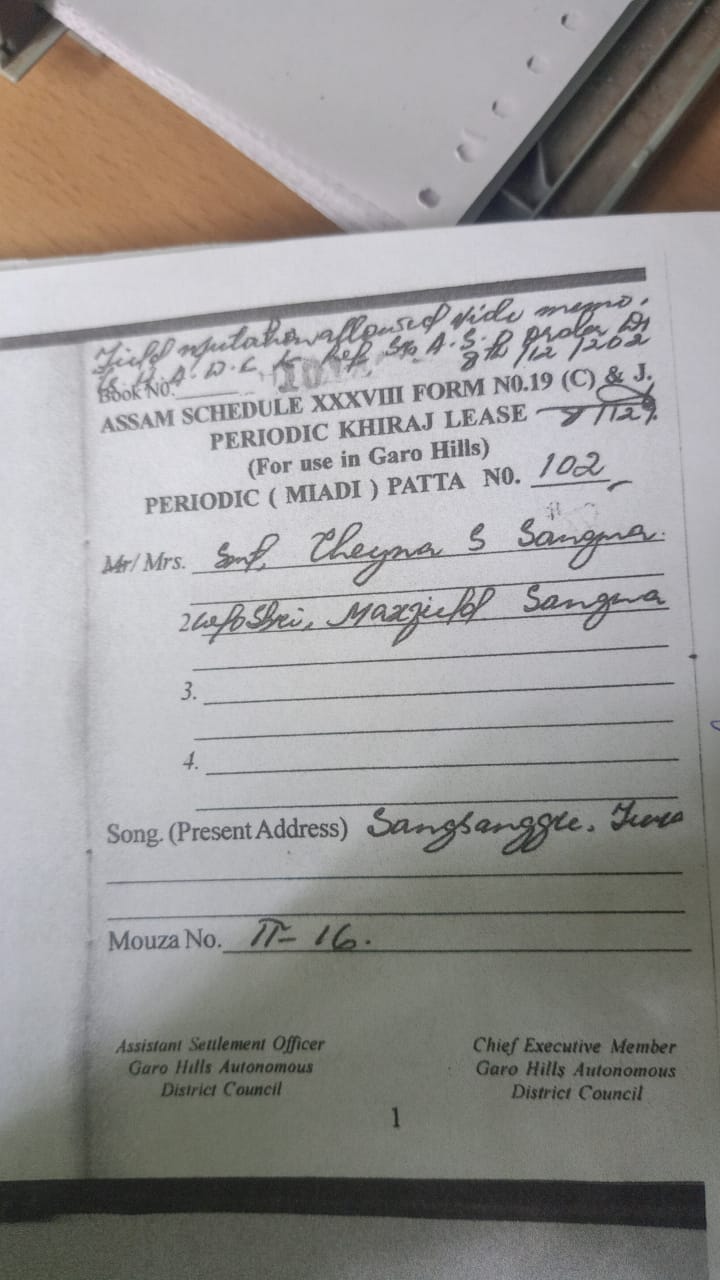 Field mutation allowed vide memo.
order Dt
Book No. 8th /12 /202
ASSAM SCHEDULE XXXVIII FORM N0.19 (C) & J.
PERIODIC KHIRAJ LEASE
(For use in Garo Hills)
PERIODIC ( MIADI ) PATTA N0. 102
Mr/ Mrs. Smt. Cheyna S Sangma.
2 w/o Shri, Maxfield Sangma
3.
4.
Song. (Present Address) Sangsanggre, Tura
Mouza No. II- 16.
Assistant Settlement Officer
Garo Hills Autonomous
District Council
Chief Executive Member
Garo Hills Autonomous
District Council
1